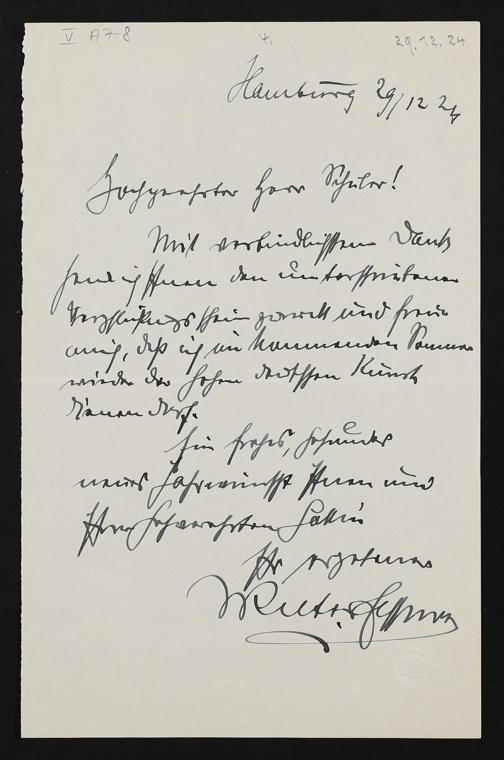 V A7-8 4. 29.12.24
Hamburg 29/12 24
Hochgeehrter Herr Schüler!
Mit verbindlichstem Dank
send ich Ihnen den unterschriebenen
Verpflichtungsschein zurück und freue
mich, daß ich im kommenden Sommer
wieder der hohen deutschen Kunst
dienen darf.
Ein frohes, gesundes
neues Jahr wünscht Ihnen und
Ihrer hochverehrten Gattin
Ihr ergebener